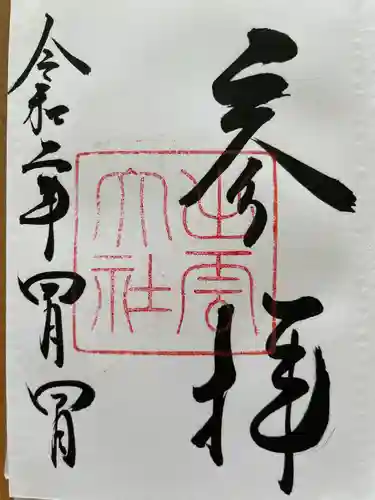 参拝
出雲
大社
令和二年四月四日